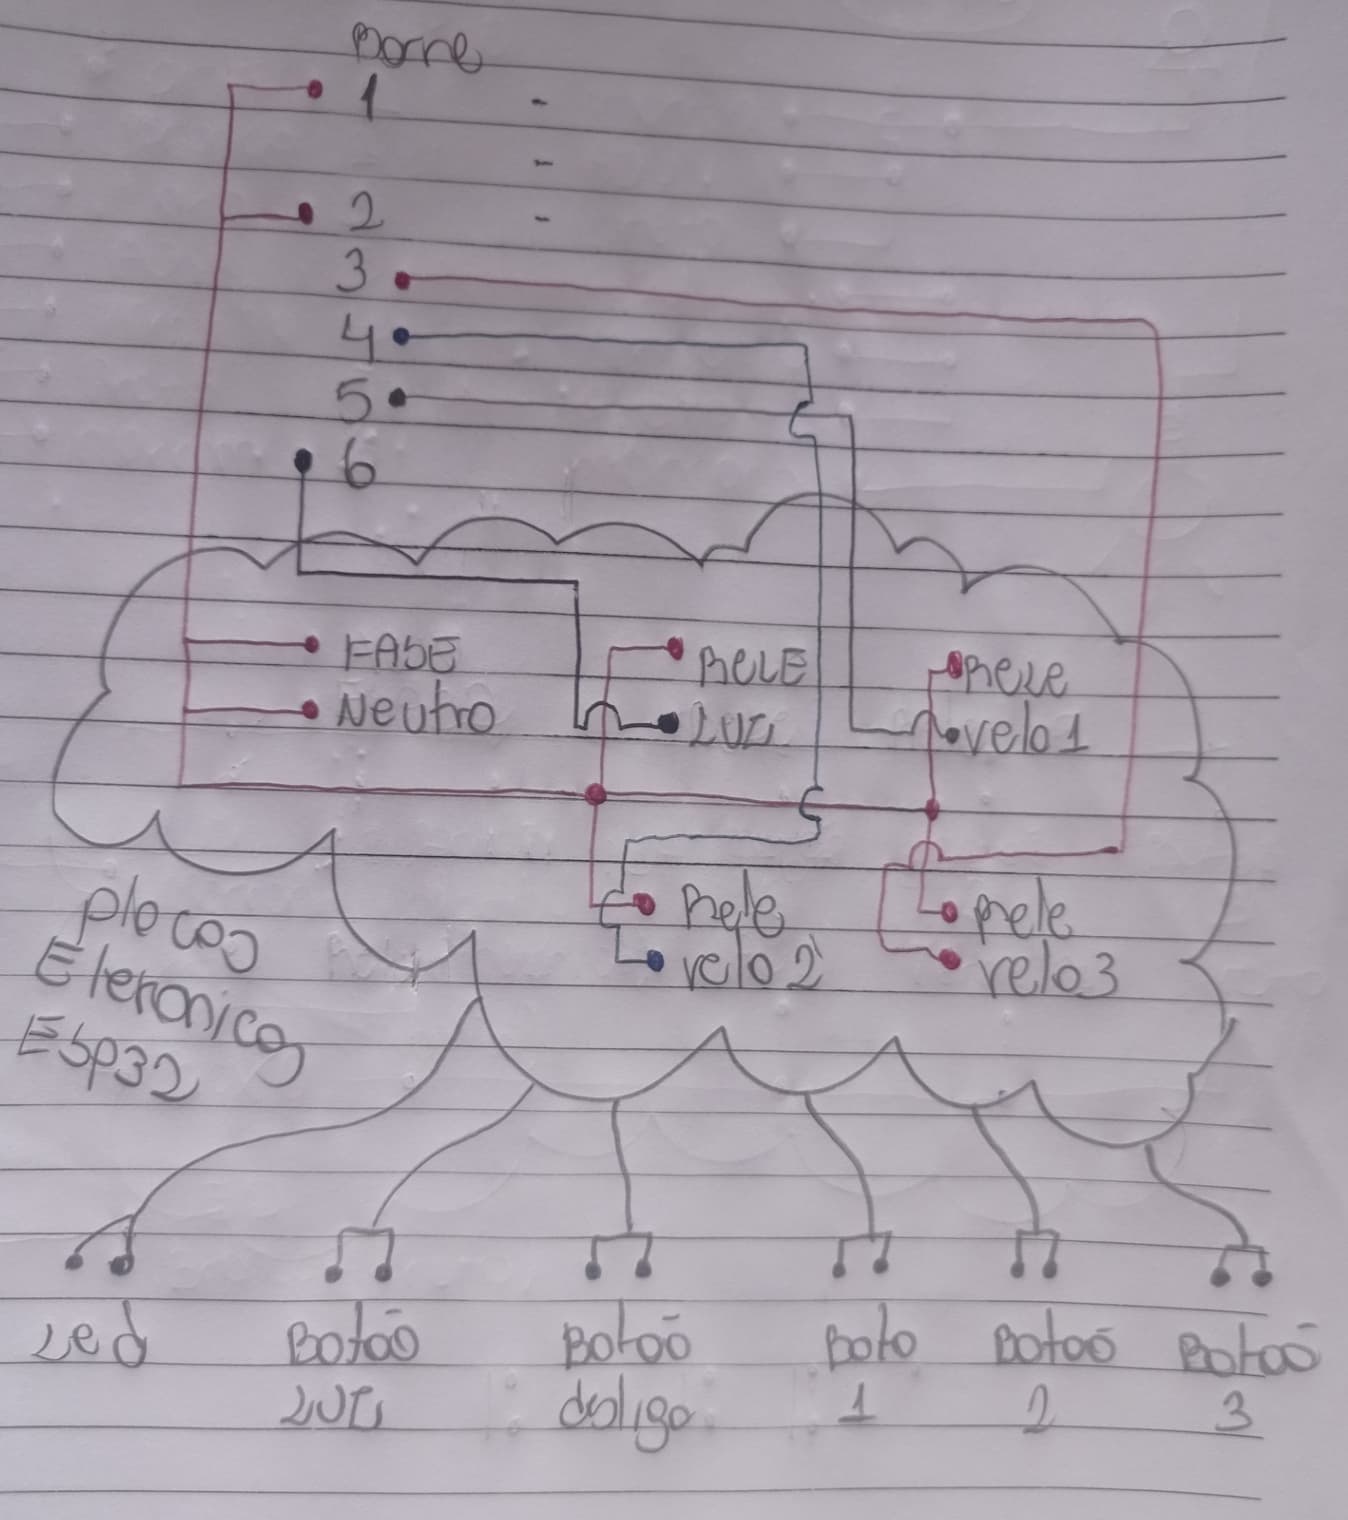 Borne
1 -
-
2 -
3
4
5
6
FASE
Neutro
RELE
LUZ
Rele
velo1
Rele
velo2
Rele
velo3
placas
Eletronica
ESP32
Led
Botão
LUZ
Botão
desliga
Boto
1
Botão
2
Botão
3